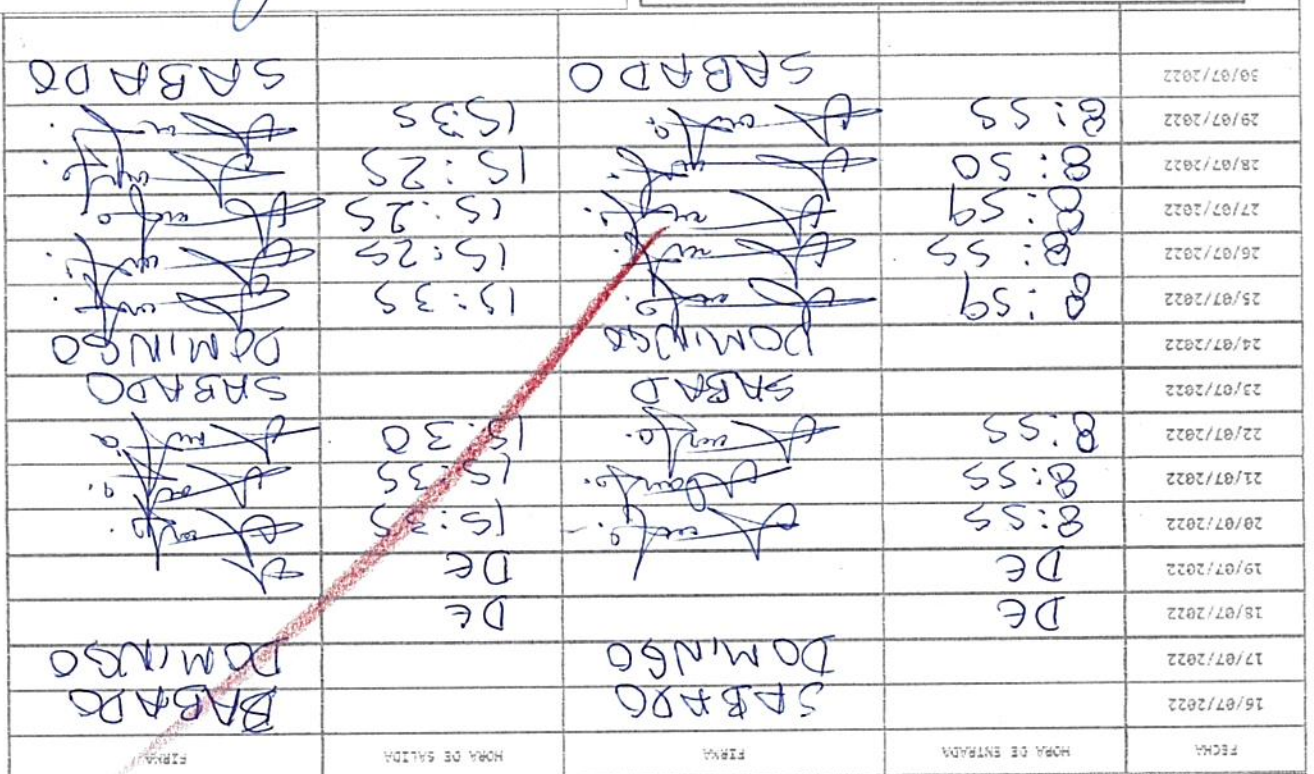 FECHA HORA DE ENTRADA FIRMA HORA DE SALIDA FIRMA
16/07/2022 SABADO BABADO
17/07/2022 DOMINGO DOMINGO
18/07/2022 DE DE
19/07/2022 DE DE
20/07/2022 8:55 15:35
21/07/2022 8:55 15:35
22/07/2022 8:55 15:30
23/07/2022 SABAD SABADO
24/07/2022 DOMINGO DOMINGO
25/07/2022 8:59 15:35
26/07/2022 8:55 15:25
27/07/2022 8:59 15:25
28/07/2022 8:50 15:25
29/07/2022 8:55 1535
30/07/2022 SABADO SABADO